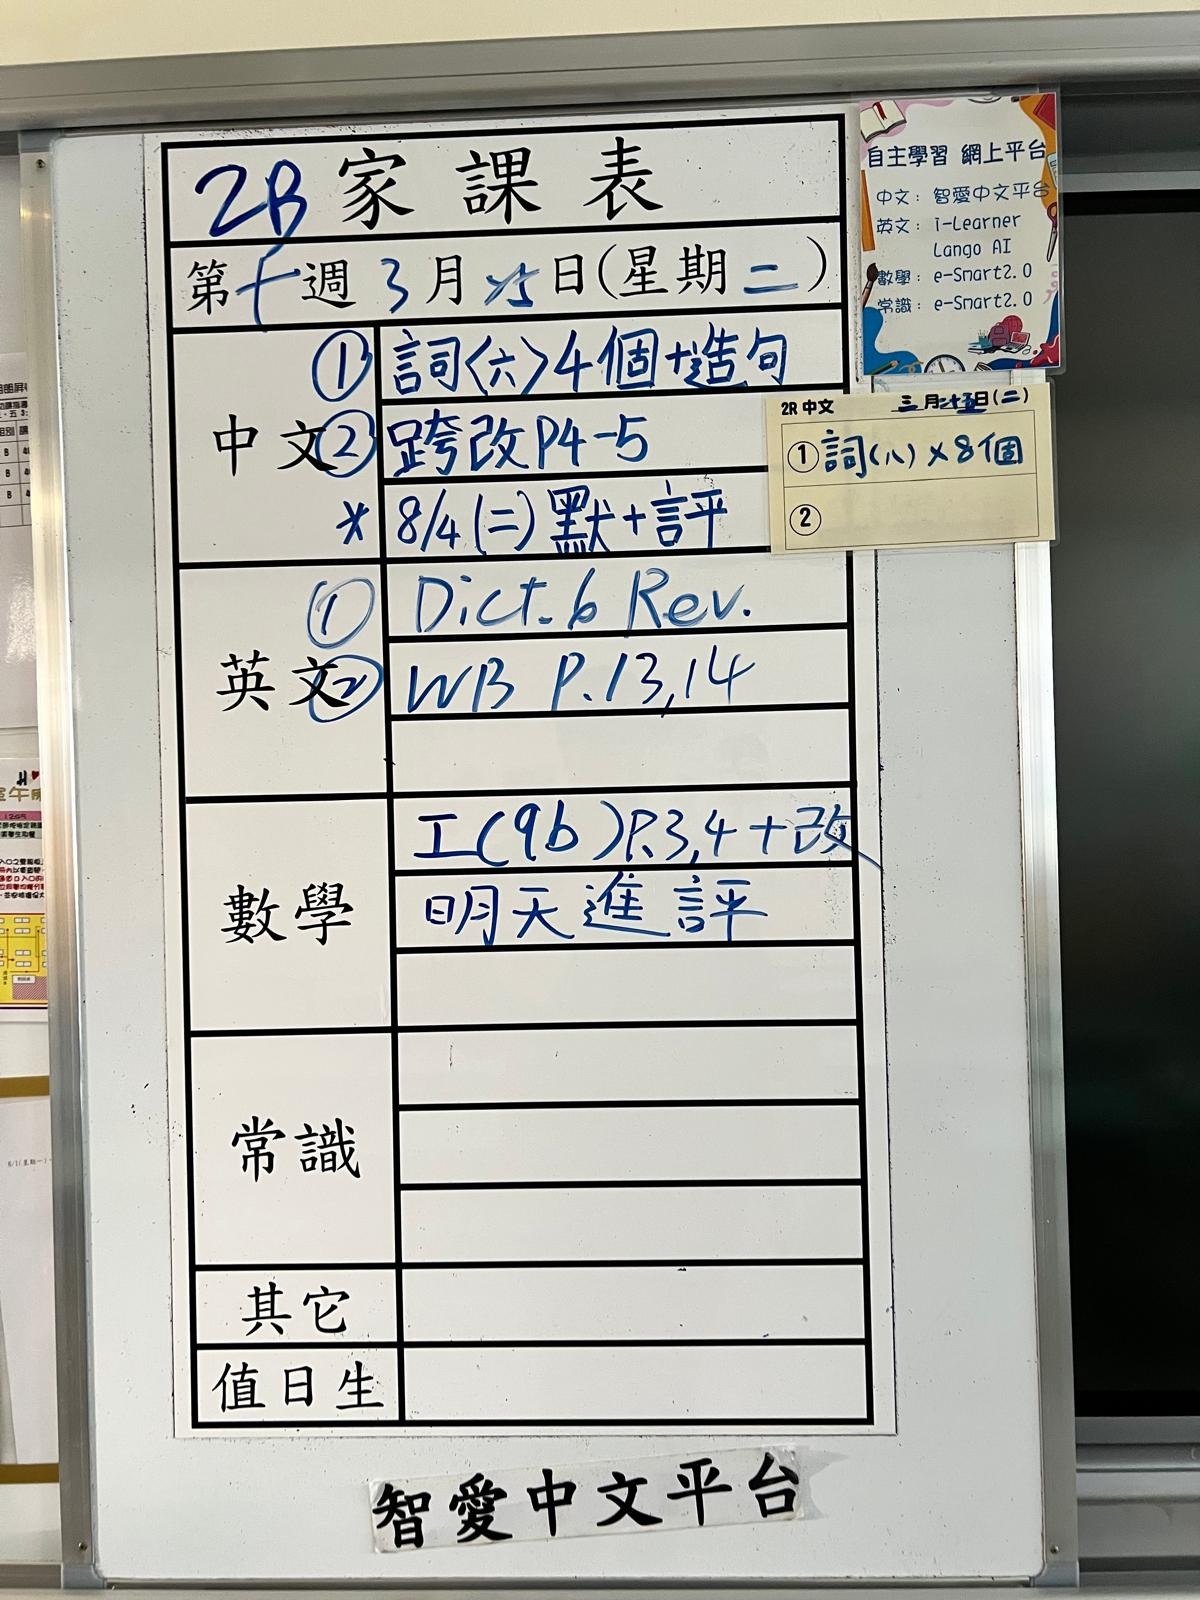 2B家課表
第十週 3月25日(星期二)
中文
① 詞〈六〉4個+造句
② 跨改P4-5
* 8/4(二)默+評
英文
① Dict. 6 Rev.
② WB P.13,14
數學
工(9b)P.3,4+改
明天進評
常識
其它
值日生
智愛中文平台
自主學習 網上平台
中文: 智愛中文平台
英文: i-Learner
Lango AI
數學: e-Smart2.0
常識: e-Smart2.0
2R 中文 三月二十五日(二)
① 詞(八)x8個
②